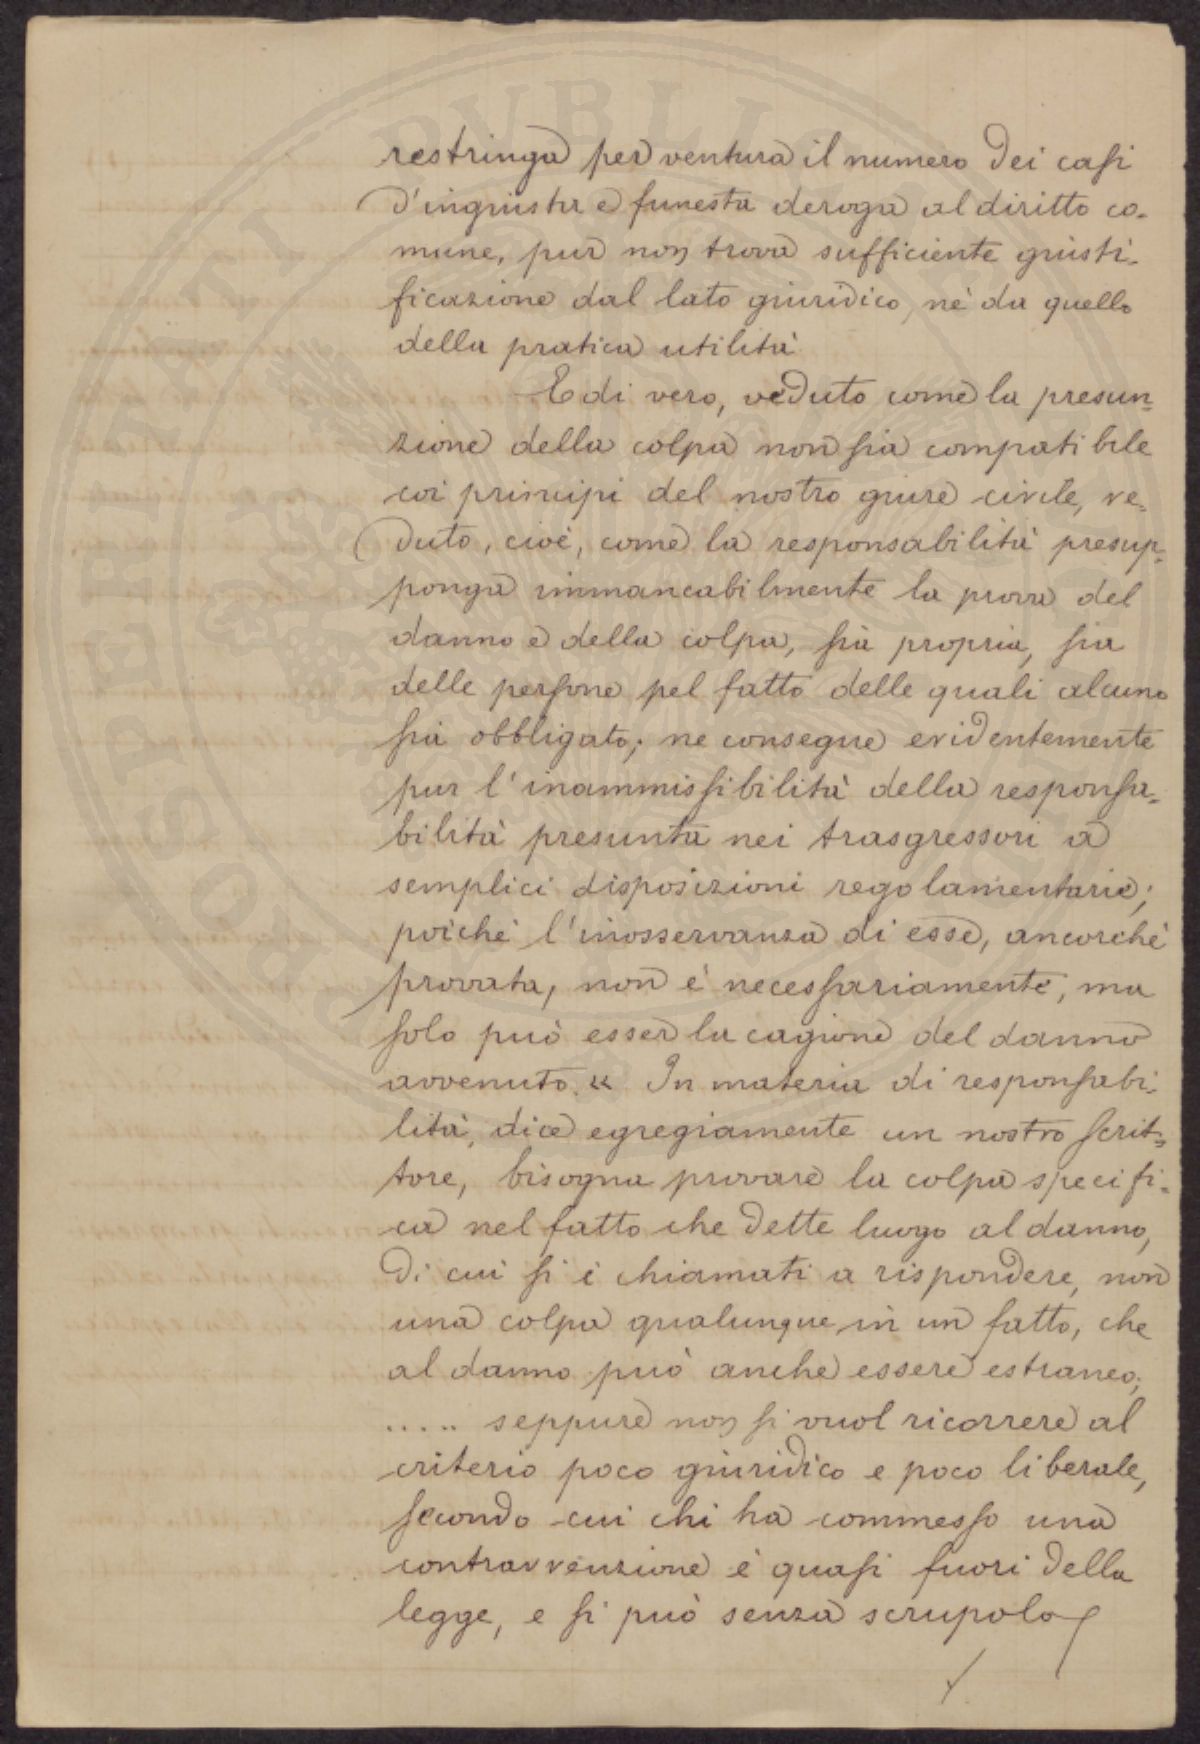 restringa per ventura il numero dei casi
d'ingiusta e funesta deroga al diritto co-
mune, pur non trova sufficiente giusti-
ficazione dal lato giuridico, nè da quello
della pratica utilità
E di vero, veduto come la presun-
zione della colpa non sia compatibile
coi principi del nostro giure civile, ve-
duto, cioè, come la responsabilità presup-
ponga immancabilmente la prova del
danno e della colpa, sia propria, sia
delle persone pel fatto delle quali alcuno
sia obbligato; ne consegue evidentemente
pur l'inammissibilità della responsa-
bilità presunta nei trasgressori a
semplici disposizioni regolamentarie;
poichè l'inosservanza di esse, ancorchè
provata, non è necessariamente, ma
solo può esser la cagione del danno
avvenuto. « In materia di responsabi-
lità, dice egregiamente un nostro scrit-
tore, bisogna provare la colpa specifi-
ca nel fatto che dette luogo al danno,
di cui si è chiamati a rispondere, non
una colpa qualunque in un fatto, che
al danno può anche essere estraneo;
..... seppure non si vuol ricorrere al
criterio poco giuridico e poco liberale,
secondo cui chi ha commesso una
contravvenzione è quasi fuori della
legge, e si può senza scrupolo